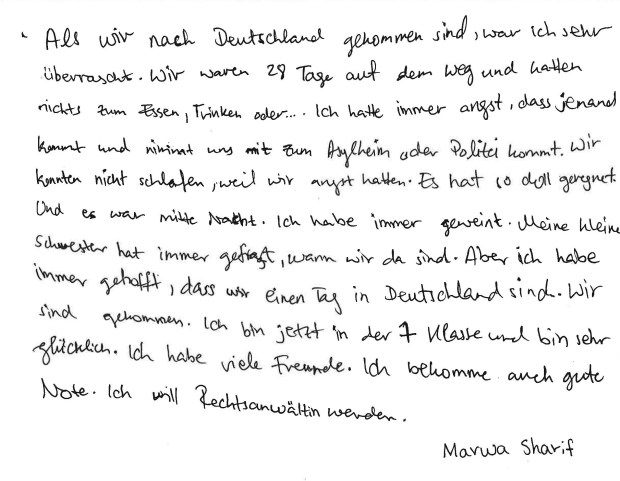 Als wir nach Deutschland gekommen sind, war ich sehr
überrascht. Wir waren 28 Tage auf dem weg und hatten
nichts zum Essen, Trinken oder... Ich hatte immer angst, dass jemand
kommt und nimmt uns mit zum Asylheim oder Politei kommt. Wir
konnten nicht schlafen, weil wir angst hatten. Es hat so doll geregnet.
Und es war mitte Nacht. Ich habe immer geweint. Meine kleine
Schwester hat immer gefragt, wann wir da sind. Aber ich habe
immer gehofft, dass wir einen Tag in Deutschland sind. Wir
sind gekommen. Ich bin jetzt in der 7 Klasse und bin sehr
glücklich. Ich habe viele Freunde. Ich bekomme auch gute
Note. Ich will Rechtsanwältin werden.
Marwa Sharif